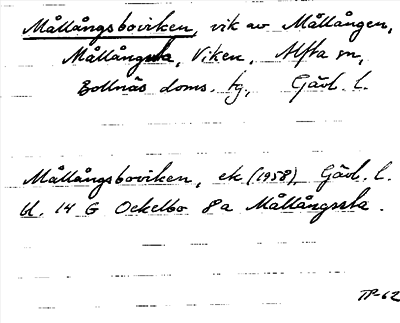 Mållångsboviken, vik av Mållången,
Mållångsta, Viken, Alfta sn,
Bollnäs doms. tg, Gävl. l.
Mållångsboviken, ek (1958), Gävl. l.
bl. 14 G Ockelbo 8a Mållångssta.
TP-62